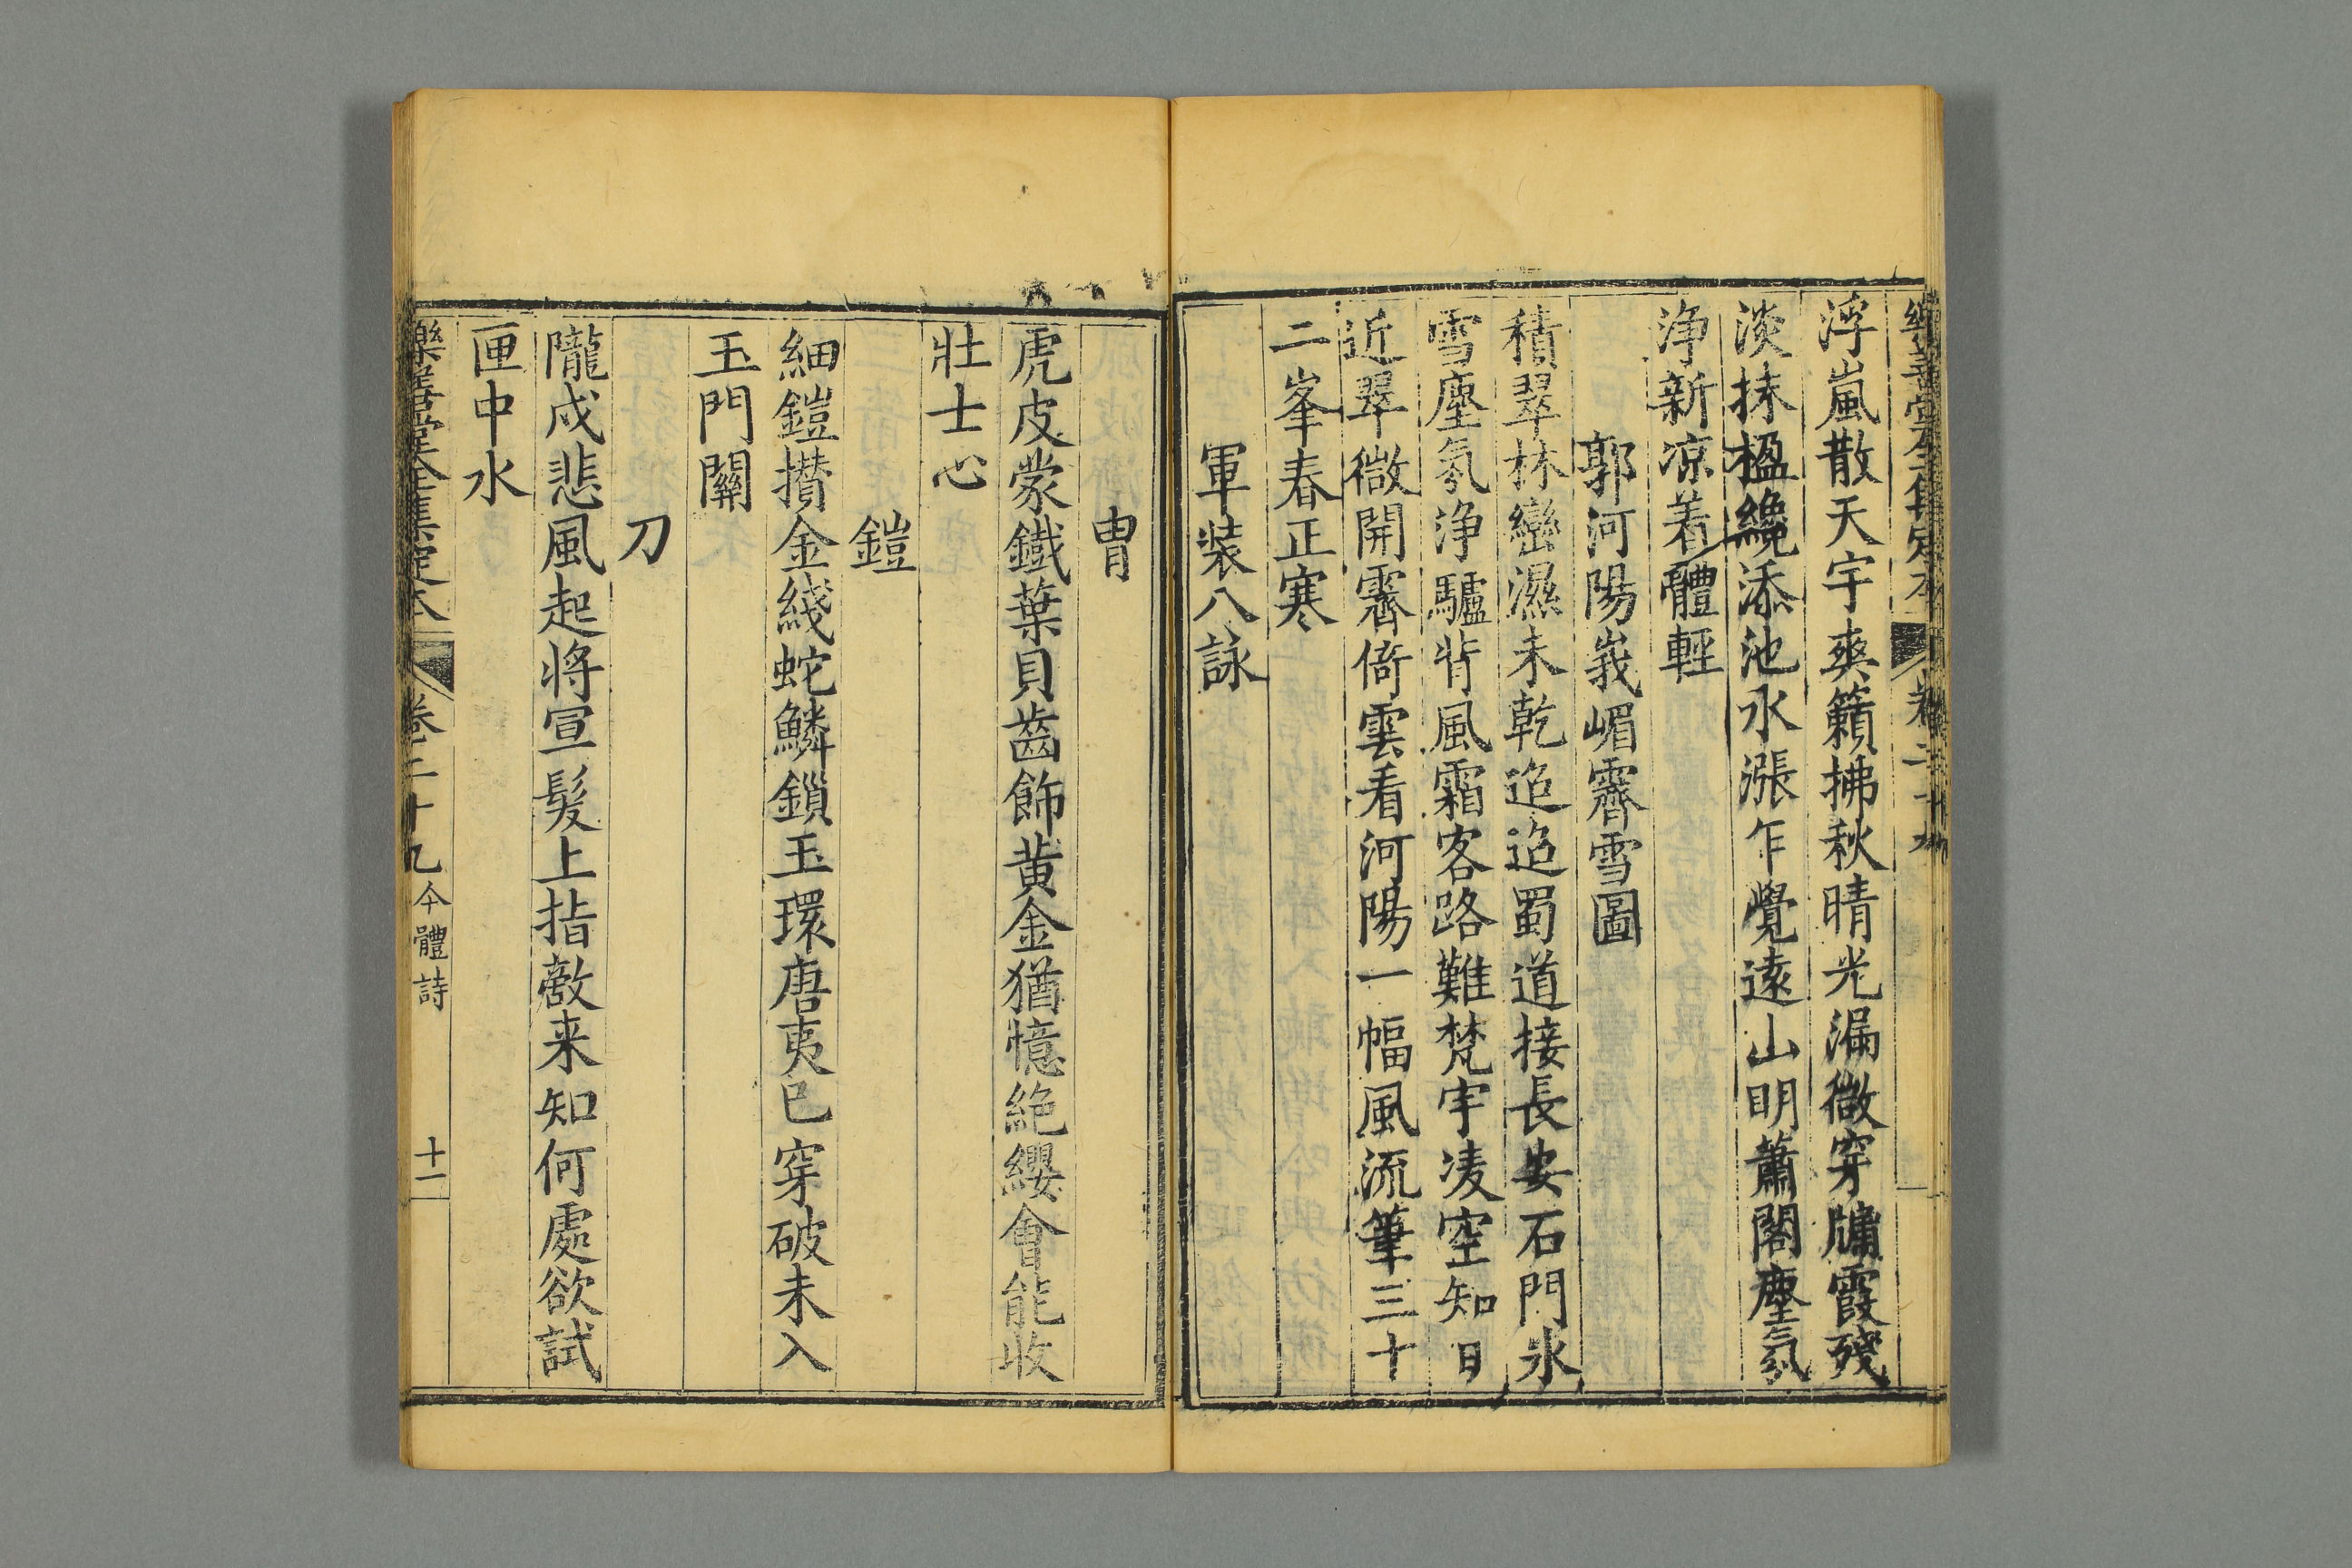 樂善堂全集定本 卷二十九
浮嵐散天宇爽籟拂秋晴光漏微穿牗霞殘
淡抹楹纔添池水漲乍覺遠山明蕭閣塵氛
浄新凉着體輕
郭河陽峩嵋霽雪圖
積翠林巒濕未乾迢迢蜀道接長安石門氷
雪塵氛浄驢背風霜客路難梵宇凌空知日
近翠微開霽倚雲看河陽一幅風流筆三十
二峯春正寒
軍裝八詠
冑
虎皮蒙鐵葉貝齒飾黄金猶憶絶纓會能收
壯士心
鎧
細鎧攅金綫蛇鱗鎖玉環唐夷已穿破未入
玉門關
刀
隴戍悲風起將宣髮上指敵来知何處欲試
匣中水
樂善堂全集定本 卷二十九 今體詩 十一